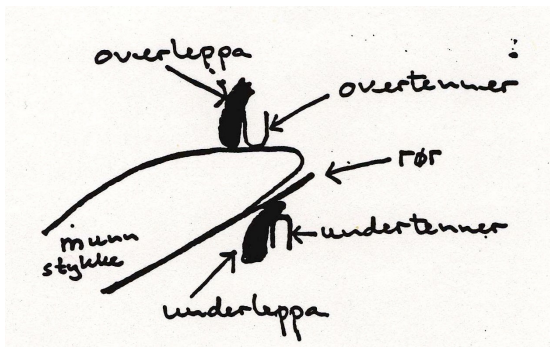 overleppa
overtenner
rør
munn
stykke
undertenner
underleppa